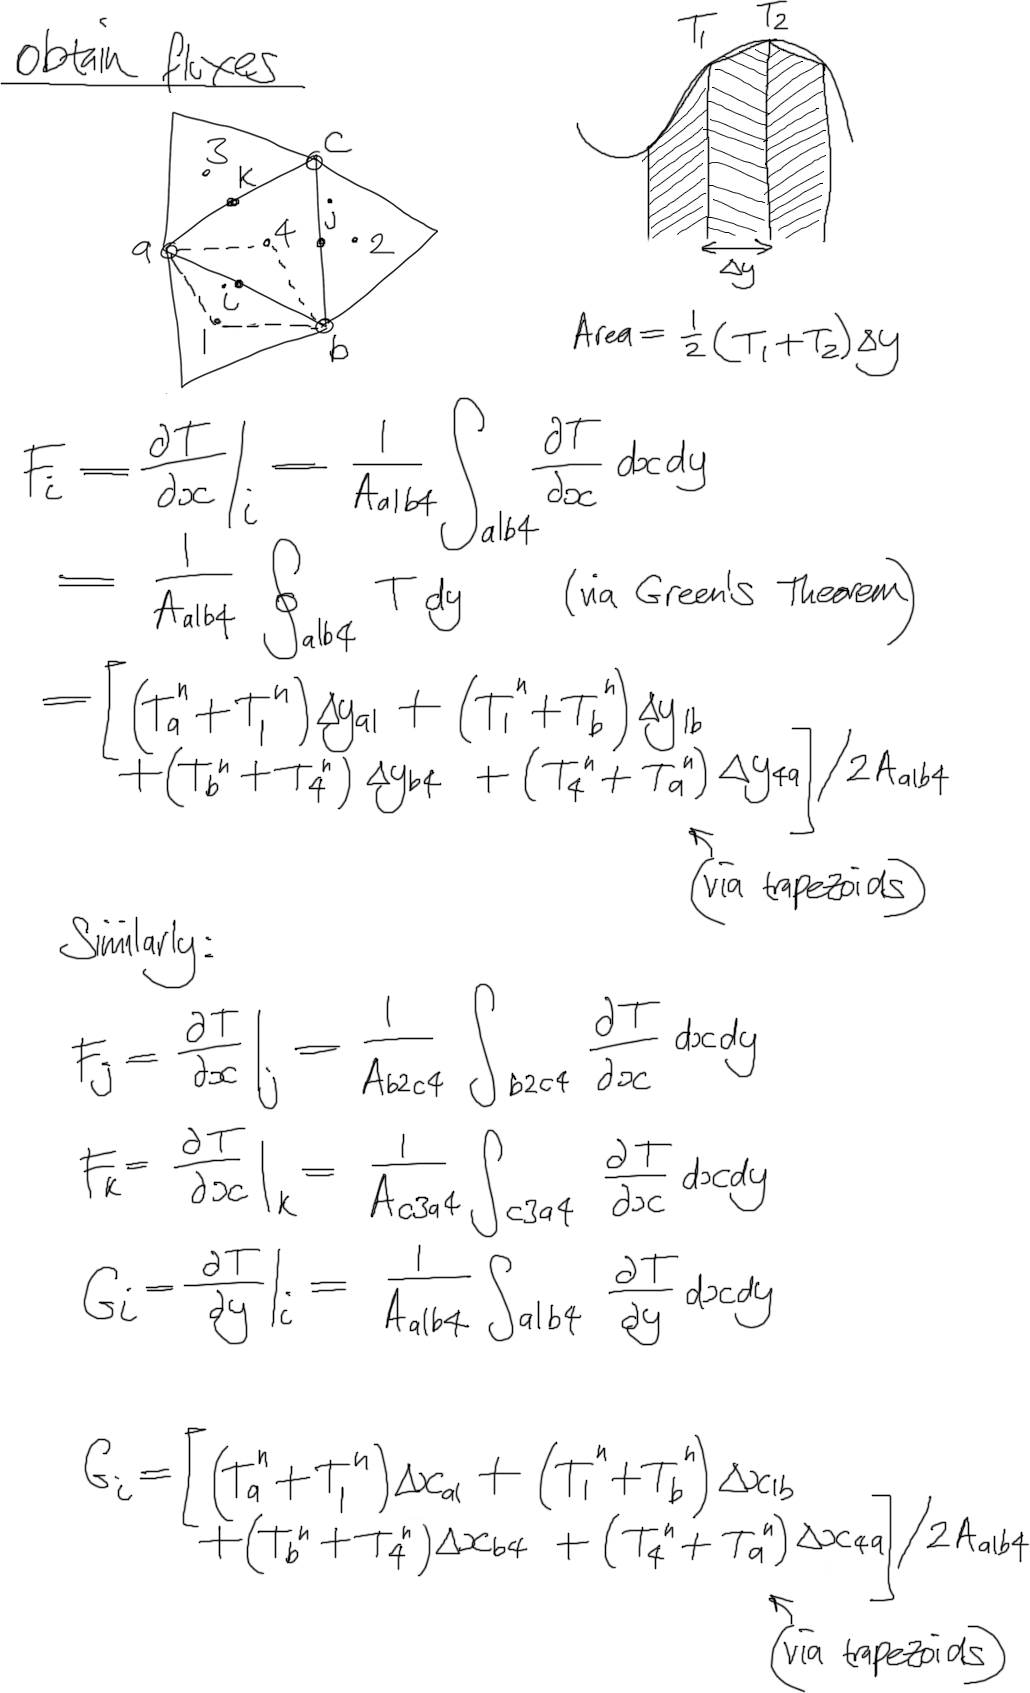 obtain fluxes
T₁ T₂
3
K
C
a
4
j
2
i
1
b
Δy
Area = ½(T₁+T₂)Δy
F_i = ∂T/∂x|_i = 1/A_a1b4 ∫_a1b4 ∂T/∂x dxdy
= 1/A_a1b4 ∮_a1b4 T dy (via Green's Theorem)
= [(T_a^n + T_1^n)Δy_a1 + (T_1^n + T_b^n)Δy_1b
+(T_b^n + T_4^n)Δy_b4 + (T_4^n + T_a^n)Δy_4a]/2A_a1b4
(via trapezoids)
Similarly:
F_j = ∂T/∂x|_j = 1/A_b2c4 ∫_b2c4 ∂T/∂x dxdy
F_k = ∂T/∂x|_k = 1/A_c3a4 ∫_c3a4 ∂T/∂x dxdy
G_i = ∂T/∂y|_i = 1/A_a1b4 ∫_a1b4 ∂T/∂y dxdy
G_i = [(T_a^n + T_1^n)Δx_a1 + (T_1^n + T_b^n)Δx_1b
+(T_b^n + T_4^n)Δx_b4 + (T_4^n + T_a^n)Δx_4a]/2A_a1b4
(via trapezoids)